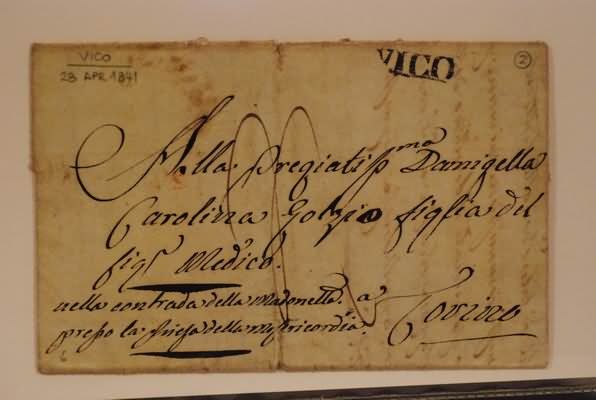 VICO
28 APR 1841
VICO
2
Alla Pregiatissma Damigella
Carolina Golzio figlia del
sigr Medico.
nella contrada della Madonetta. a Torino
presso la chiesa della Misericordia.